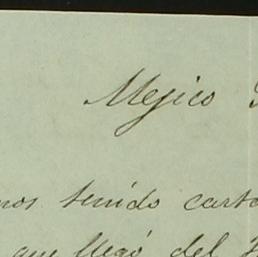 Mejico
mos tenido carta
que llegó del